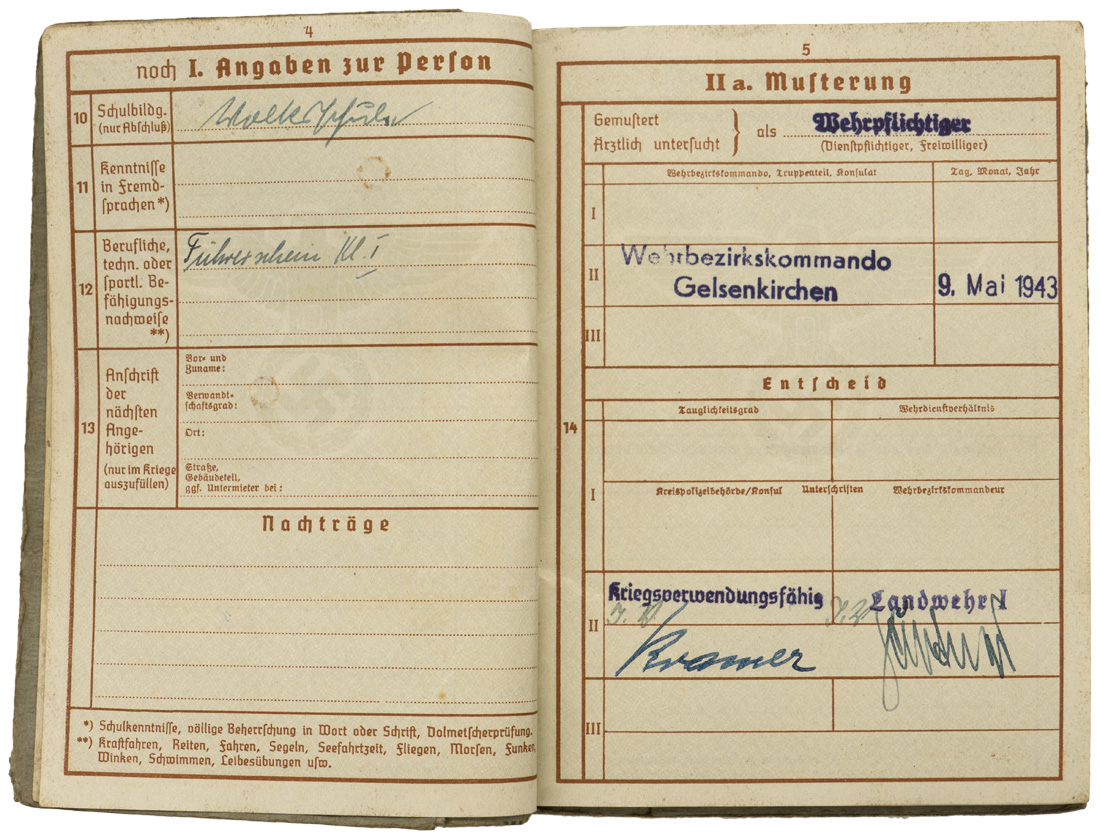 4
noch I. Angaben zur Person
10
Schulbildg.
(nur Abschluß)
Volksschule
11
Kenntnisse
in Fremd-
sprachen*)
12
Berufliche,
techn. oder
sportl. Be-
fähigungs-
nachweise
**)
Führerschein Kl. I
13
Anschrift
der
nächsten
Ange-
hörigen
(nur im Kriege
auszufüllen)
Vor- und
Zuname:
Verwandt-
schaftsgrad:
Ort:
Straße,
Gebäudeteil,
ggf. Untermieter bei:
Nachträge
*) Schulkenntnisse, völlige Beherrschung in Wort oder Schrift, Dolmetscherprüfung.
**) Kraftfahren, Reiten, Fahren, Segeln, Seefahrtzeit, Fliegen, Morsen, Funken,
Winken, Schwimmen, Leibesübungen usw.
5
II a. Musterung
Gemustert
Ärztlich untersucht
als Wehrpflichtiger
(Dienstpflichtiger, Freiwilliger)
Wehrbezirkskommando, Truppenteil, Konsulat
Tag, Monat, Jahr
I
II
Wehrbezirkskommando
Gelsenkirchen
9. Mai 1943
III
Entscheid
14
Tauglichkeitsgrad
Wehrdienstverhältnis
I
Kreispolizeibehörde/Konsul Unterschriften Wehrbezirkskommandeur
II
Kriegsverwendungsfähig
Landwehr I
J. V.
J. V.
Kramer
III